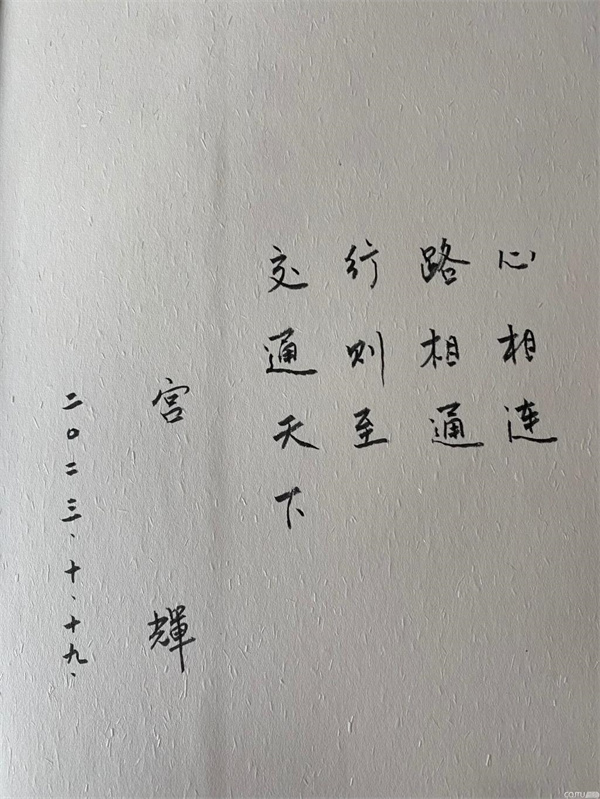 心相连
路相通
行则至
交通天下
宫輝
二〇二三、十、十九、